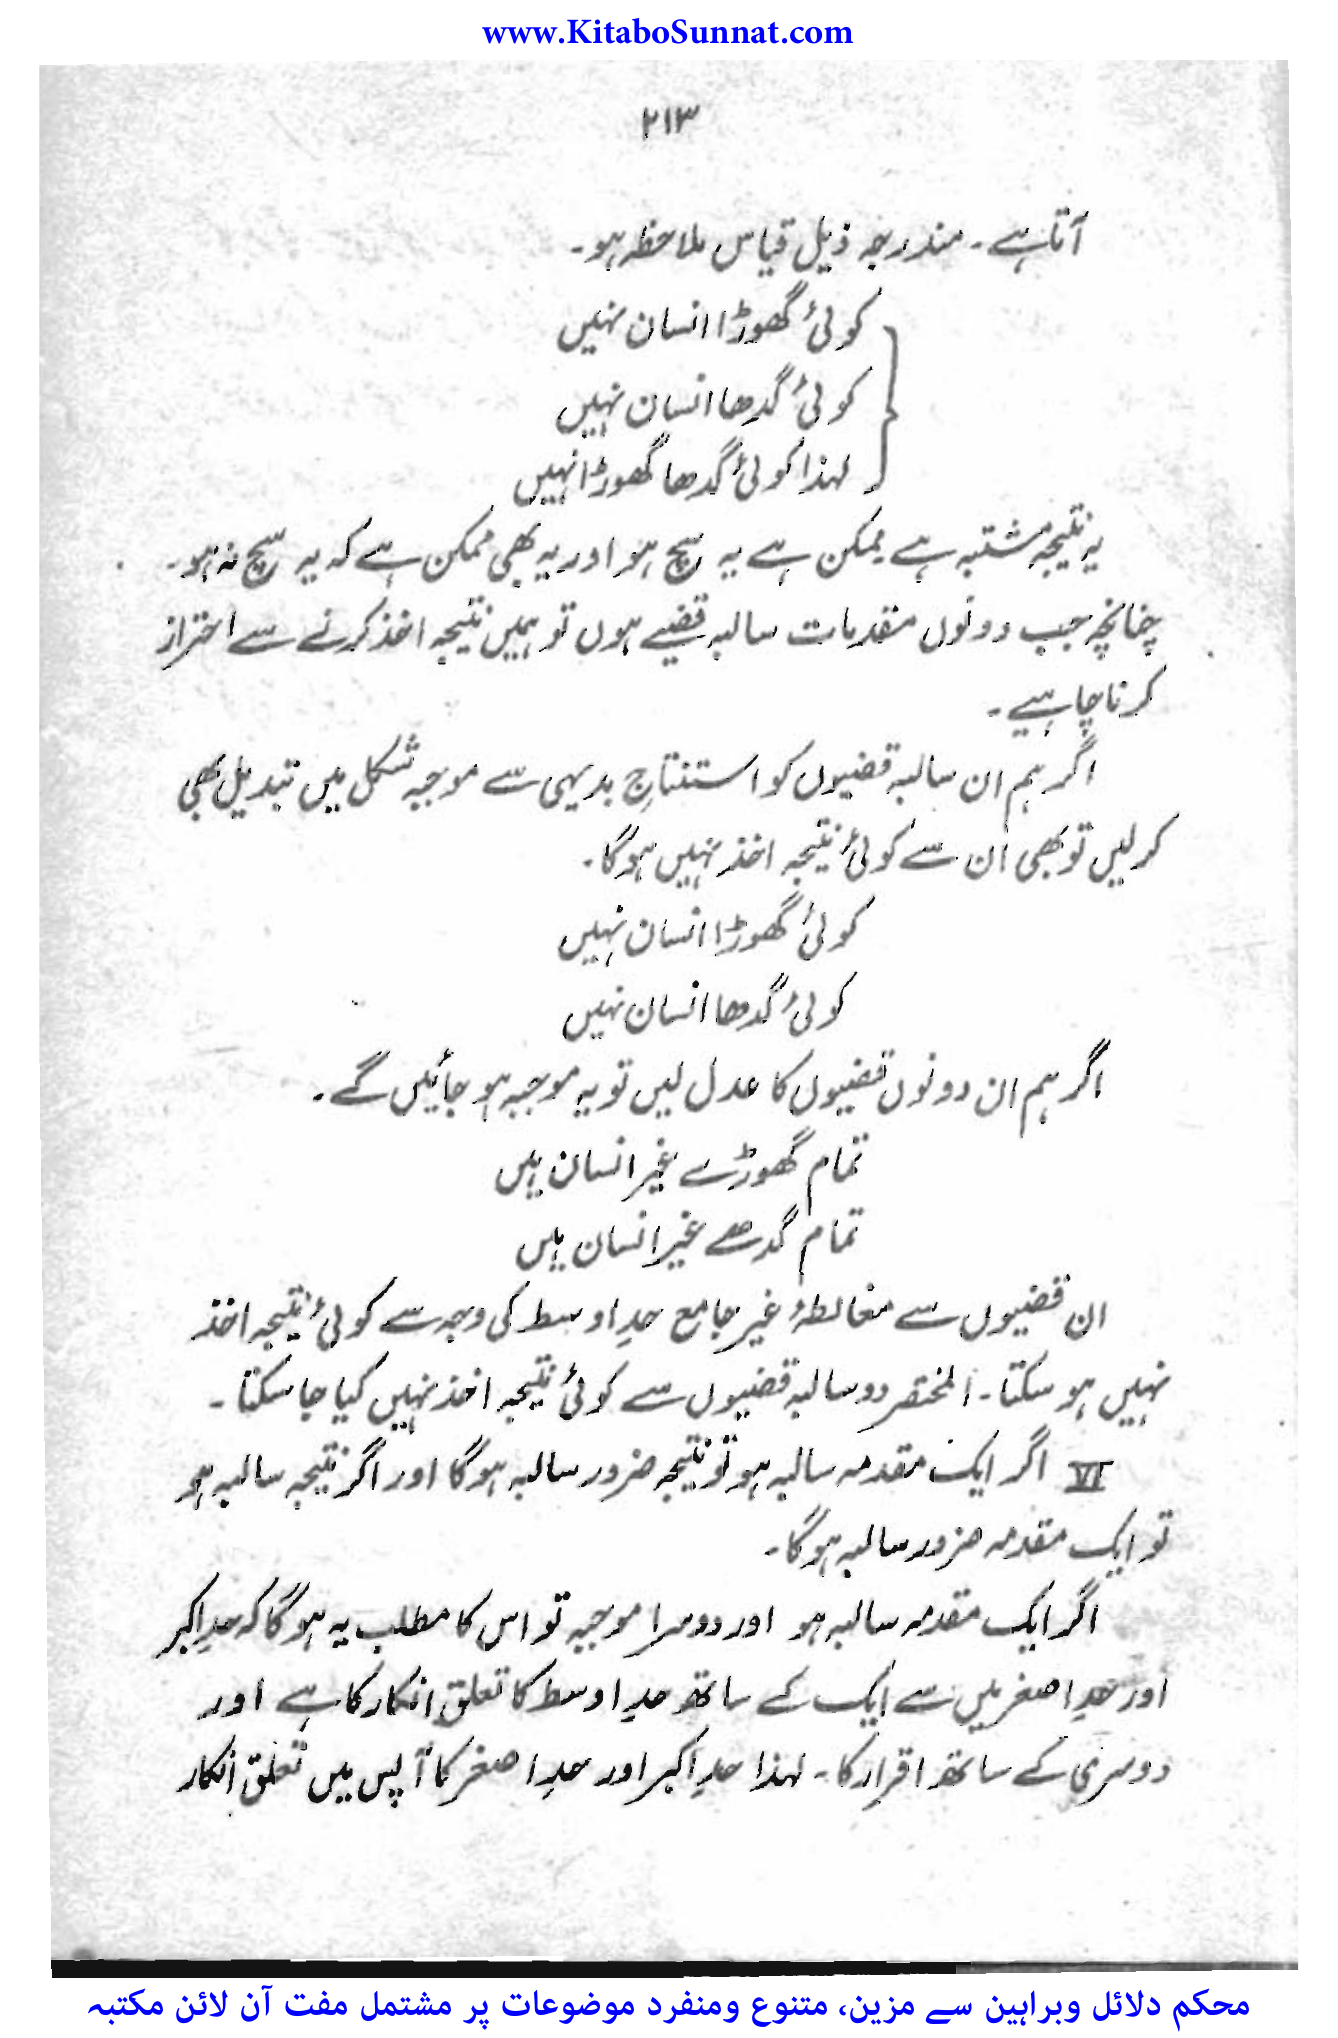 www.KitaboSunnat.com
۲۱۳
آتا ہے۔ مندرجہ ذیل قیاس ملاحظہ ہو۔
کوئی گھوڑا انسان نہیں
کوئی گدھا انسان نہیں
لہذا کوئی گدھا گھوڑا نہیں
یہ نتیجہ مشتبہ ہے ممکن ہے یہ سچ ہو اور یہ بھی ممکن ہے کہ یہ سچ نہ ہو۔
چنانچہ جب دونوں مقدمات سالبہ قضیے ہوں تو ہمیں نتیجہ اخذ کرنے سے احتراز
کرنا چاہیے۔
اگر ہم ان سالبہ قضیوں کو استنتاجِ بدیہی سے موجبہ شکل میں تبدیل بھی
کر لیں تو بھی ان سے کوئی نتیجہ اخذ نہیں ہو گا۔
کوئی گھوڑا انسان نہیں
کوئی گدھا انسان نہیں
اگر ہم ان دونوں قضیوں کا عدل لیں تو یہ موجبہ ہو جائیں گے۔
تمام گھوڑے غیر انسان ہیں
تمام گدھے غیر انسان ہیں
ان قضیوں سے مغالطۂ غیر جامع حدِ اوسط کی وجہ سے کوئی نتیجہ اخذ
نہیں ہو سکتا۔ المختصر دو سالبہ قضیوں سے کوئی نتیجہ اخذ نہیں کیا جا سکتا۔
VI اگر ایک مقدمہ سالبہ ہو تو نتیجہ ضرور سالبہ ہو گا اور اگر نتیجہ سالبہ ہو
تو ایک مقدمہ ضرور سالبہ ہو گا۔
اگر ایک مقدمہ سالبہ ہو اور دوسرا موجبہ تو اس کا مطلب یہ ہو گا کہ حدِ اکبر
اور حدِ اصغر میں سے ایک کے ساتھ حدِ اوسط کا تعلق انکار کا ہے اور
دوسری کے ساتھ اقرار کا۔ لہذا حدِ اکبر اور حدِ اصغر کا آپس میں تعلق انکار
محکم دلائل وبراہین سے مزین، متنوع ومنفرد موضوعات پر مشتمل مفت آن لائن مکتبہ